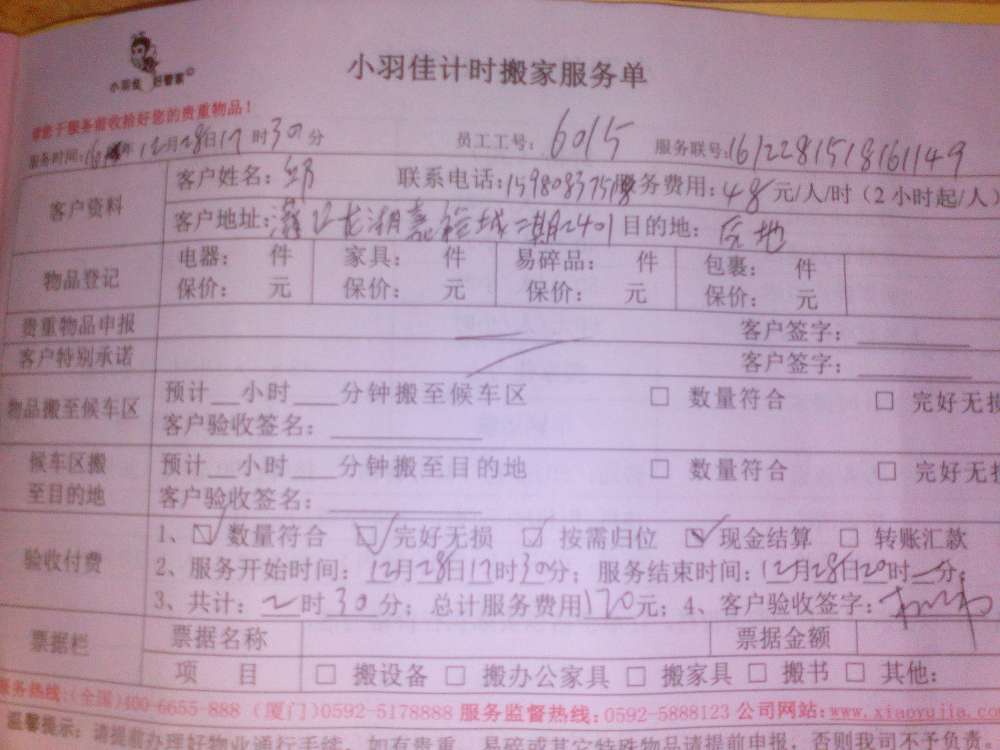 小羽佳 好管家
小羽佳计时搬家服务单
请您于服务前收拾好您的贵重物品！
服务时间：16年12月28日17时30分 员工工号：6015 服务联号：1612281518161149
客户资料
客户姓名： 联系电话：1598083751 服务费用：48元/人/时（2小时起/人）
客户地址： 龙湖嘉裕城二期2401 目的地：
物品登记
电器： 件 家具： 件 易碎品： 件 包裹： 件
保价： 元 保价： 元 保价： 元 保价： 元
贵重物品申报 客户签字：
客户特别承诺 客户签字：
物品搬至候车区
预计__小时___分钟搬至候车区 □ 数量符合 □ 完好无损
客户验收签名：
候车区搬至目的地
预计__小时___分钟搬至目的地 □ 数量符合 □ 完好无损
客户验收签名：
验收付费
1、☑数量符合 ☑完好无损 ☑按需归位 ☑现金结算 □ 转账汇款
2、服务开始时间：12月28日17时30分；服务结束时间：12月28日20时—分；
3、共计：2时30分；总计服务费用120元；4、客户验收签字：
票据栏
票据名称 票据金额
项 目 □ 搬设备 □ 搬办公家具 □ 搬家具 □ 搬书 □ 其他：
服务热线：(全国)400-6655-888 (厦门)0592-5178888 服务监督热线：0592-5888123 公司网站：www.xiaoyujia.com
温馨提示：请提前办理好物业通行手续，如有贵重、易碎或其它特殊物品请提前申报，否则我司不予负责。